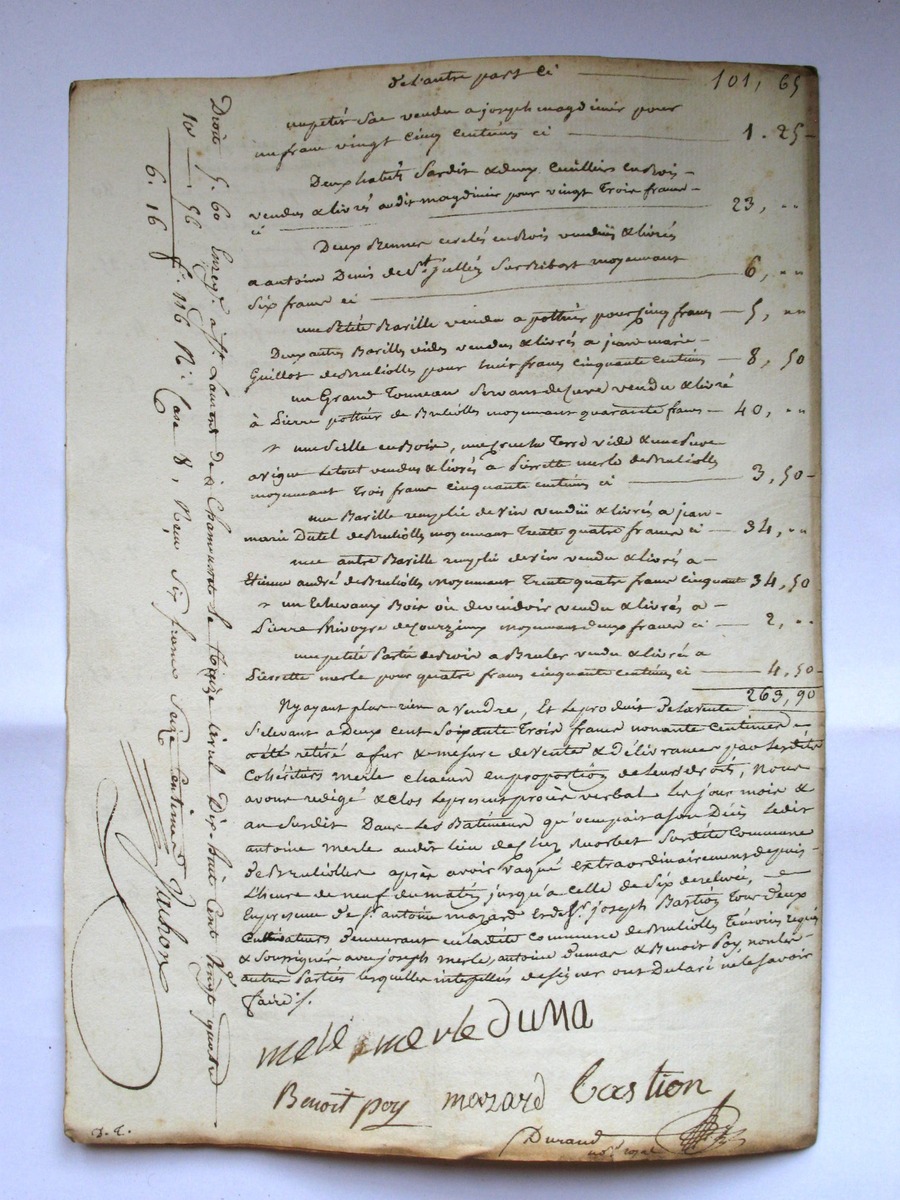 de l'autre part ci — 101, 65
un petit sac vendu a joseph magdinier pour
un franc vingt cinq centimes ci — 1. 25
Deux habits Sardit & deux cuilliers en bois
vendus & livrés audit magdinier pour vingt trois francs
ci — 23, ..
Deux Bennes cerclés en bois vendus & livrés
a antoine Denis de St. jullien Sur Bibost moyennant
Six francs ci — 6, ..
une petite Barille vendu a pottier pour cinq francs — 5, ..
Deux autres Barilles vides vendus & livrés a jean marie
Guillot de Brullioles pour huit francs cinquante centimes — 8, 50
un Grand Tonneau Servant de cuve vendu & livré
à Pierre pottier de Brullioles moyennant quarante francs — 40, ..
une Seille en Bois, une de Terre vide & une
le tout vendus & livrés a Pierrette merle de Brullioles
moyennant Trois francs cinquante centimes ci — 3, 50
une Barille remplie de vin vendu & livrés a jean
marie Dutel de Brullioles moyennant Trente quatre francs ci — 34, ..
une autre Barille remplie de vin vendu & livrés a
Etienne andré de Brullioles moyennant Trente quatre francs cinquant 34, 50
un Echevaux Bois ou devidoir vendu & livrés a
Pierre de Courzieux moyennant deux francs ci — 2, ..
une petite Partie de Bois a Bruler vendu & livré a
Pierrette merle pour quatre francs cinquante centimes ci — 4, 50
263, 90
N'y ayant plus rien a vendre, Et le produit de la vente
S'elevant a Deux cent Soixante Trois francs nonante centimes
a été retiré a fur & mesure de ventes & délivrances par lesdits
Cohéritiers merle chacun en proportion de leurs droits, Nous
avons redigé & clos le present procès verbal les jour mois &
an Susdit Dans les Batimens qu'occupait a son Décès ledit
antoine merle audit lieu de chez morbet Susdite Commune
de Brullioles après avoir vaqué extraordinairement depuis
l'heure de neuf du matin jusqu'a celle de Six de relevée,
En presence de Sr. antoine mazard & de Sr. joseph Bastion Tous deux
Cultivateurs demeurant en ladite commune de Brullioles Témoins requis
& Soussignés avec joseph merle, antoine Dumas & Benoit Poy, non les
autres Parties lesquelles interpellés de signer ont Déclaré ne le savoir
faire /.
mele merle Duma
Benoit poy mazard bastion
Durand
not. royal
Droits f. 5. 60 Enregt. a St. Laurent de Chamousset le seize avril Dix huit Cent vingt quatre
10 — , 56 fo. 116 Ro. Case 8, Reçu Six francs Seize Centimes
6. 16
D. L.